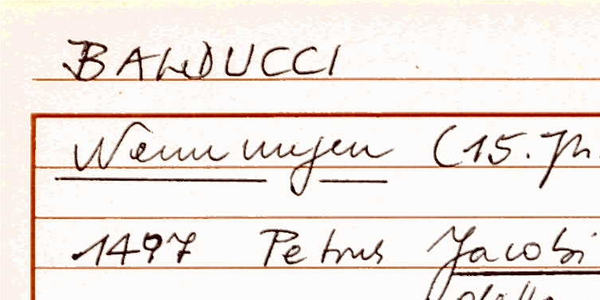 BALDUCCI
Nennungen (15. Jh.
1497 Petrus Jacobi